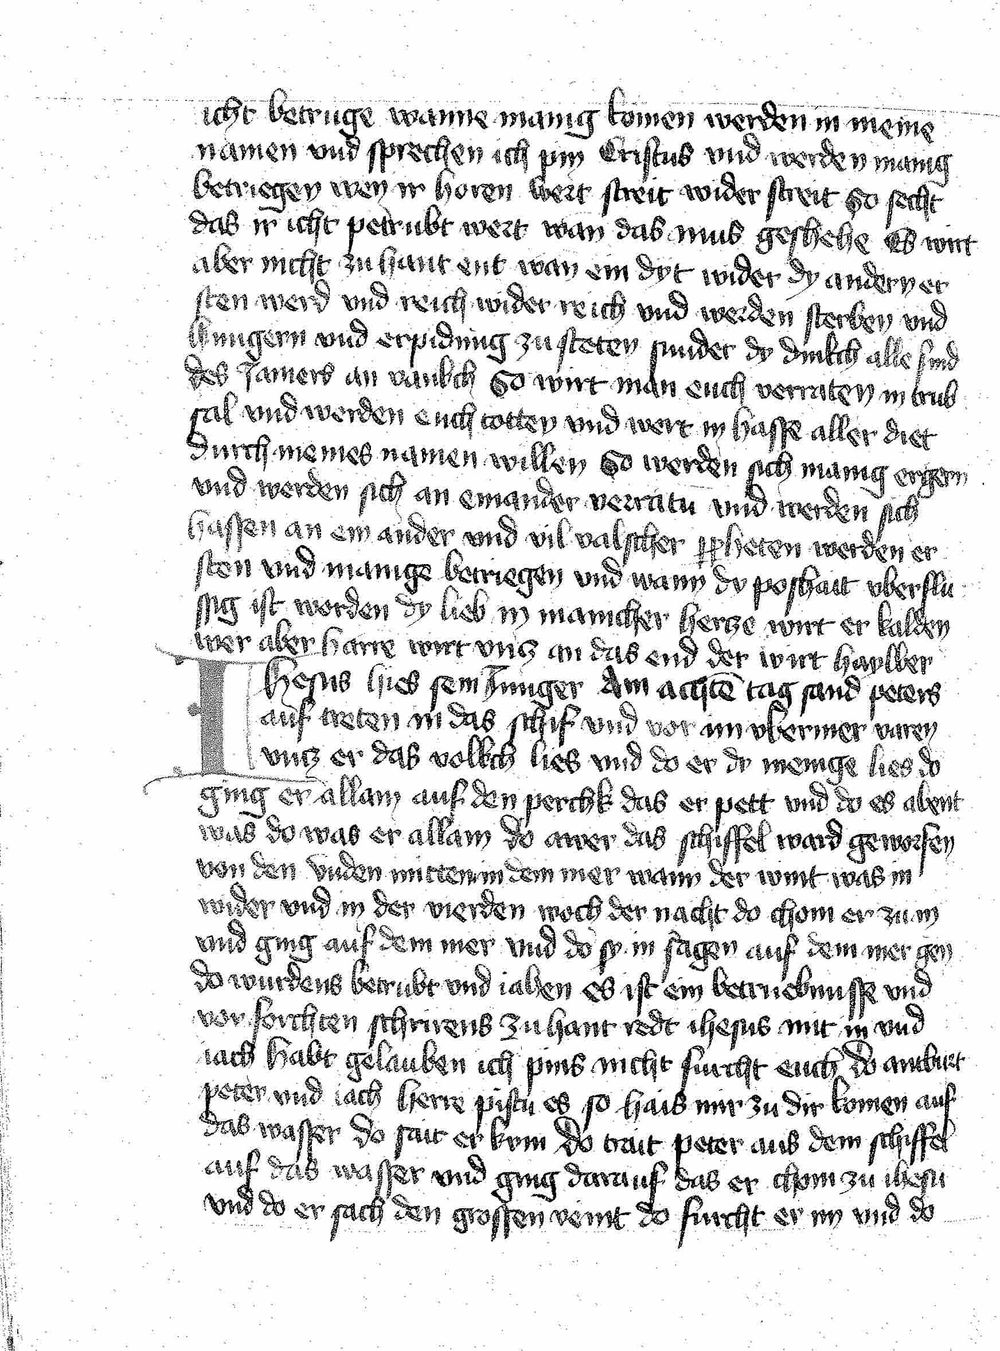 icht betruge wanne manig komen werden in meine
namen vnd sprechen ich pin Cristus vnd werden manig
betriegen wen ir horen wert streit wider streit So secht
das ir icht petrubt wert wan das mus geschehe Es wirt
aber nicht zu hant ent wan ein dyt wider dy andern er
sten werd vnd reich wider reich vnd werden sterben vnd
hungern vnd erpidung zu steten sunder dy dinkch alle sind
des Jamers an vankch So wirt man euch verraten in trub
sal vnd werden euch totten vnd wert in hasse aller diet
durch meines namen willen So werden sich manig ergern
vnd werden sich an einander verratn vnd werden sich
hassen an ein ander vnd vil valscher propheten werden er
sten vnd manige betriegen vnd wann dy poshait vberflu
ssig ist worden dy lieb in manicher hertze wirt er kalden
wer aber harre wirt vncz an das end der wirt haylber
Ihesus hies sein Junger Am achten tag sand peters
auf treten in das schif vnd vor im vbermer varen
vncz er das volkch lies vnd do er dy menige lies do
ging er allain auf den perchk das er pett vnd do es abent
was do was er allain do awer das schiffel ward geworfen
von den vnden mitten in dem mer wann der wint was in
wider vnd in der vierden woch der nacht do chom er zu in
vnd ging auf dem mer vnd do sy in sagen auf dem mer gen
do wurdens betrubt vnd iahen es ist ein betruebnusse vnd
vor forchten schrirens zu hant redt ihesus mit in vnd
iach habt gelauben ich pins nicht furcht euch do antburt
peter vnd iach herre pistu es so hais mir zu dir komen auf
das wasser do sait er kvm do trat peter aus dem schiffel
auf das wasser vnd ging darauf das er chom zu ihesu
vnd do er sach den grossen veint do furcht er im vnd do